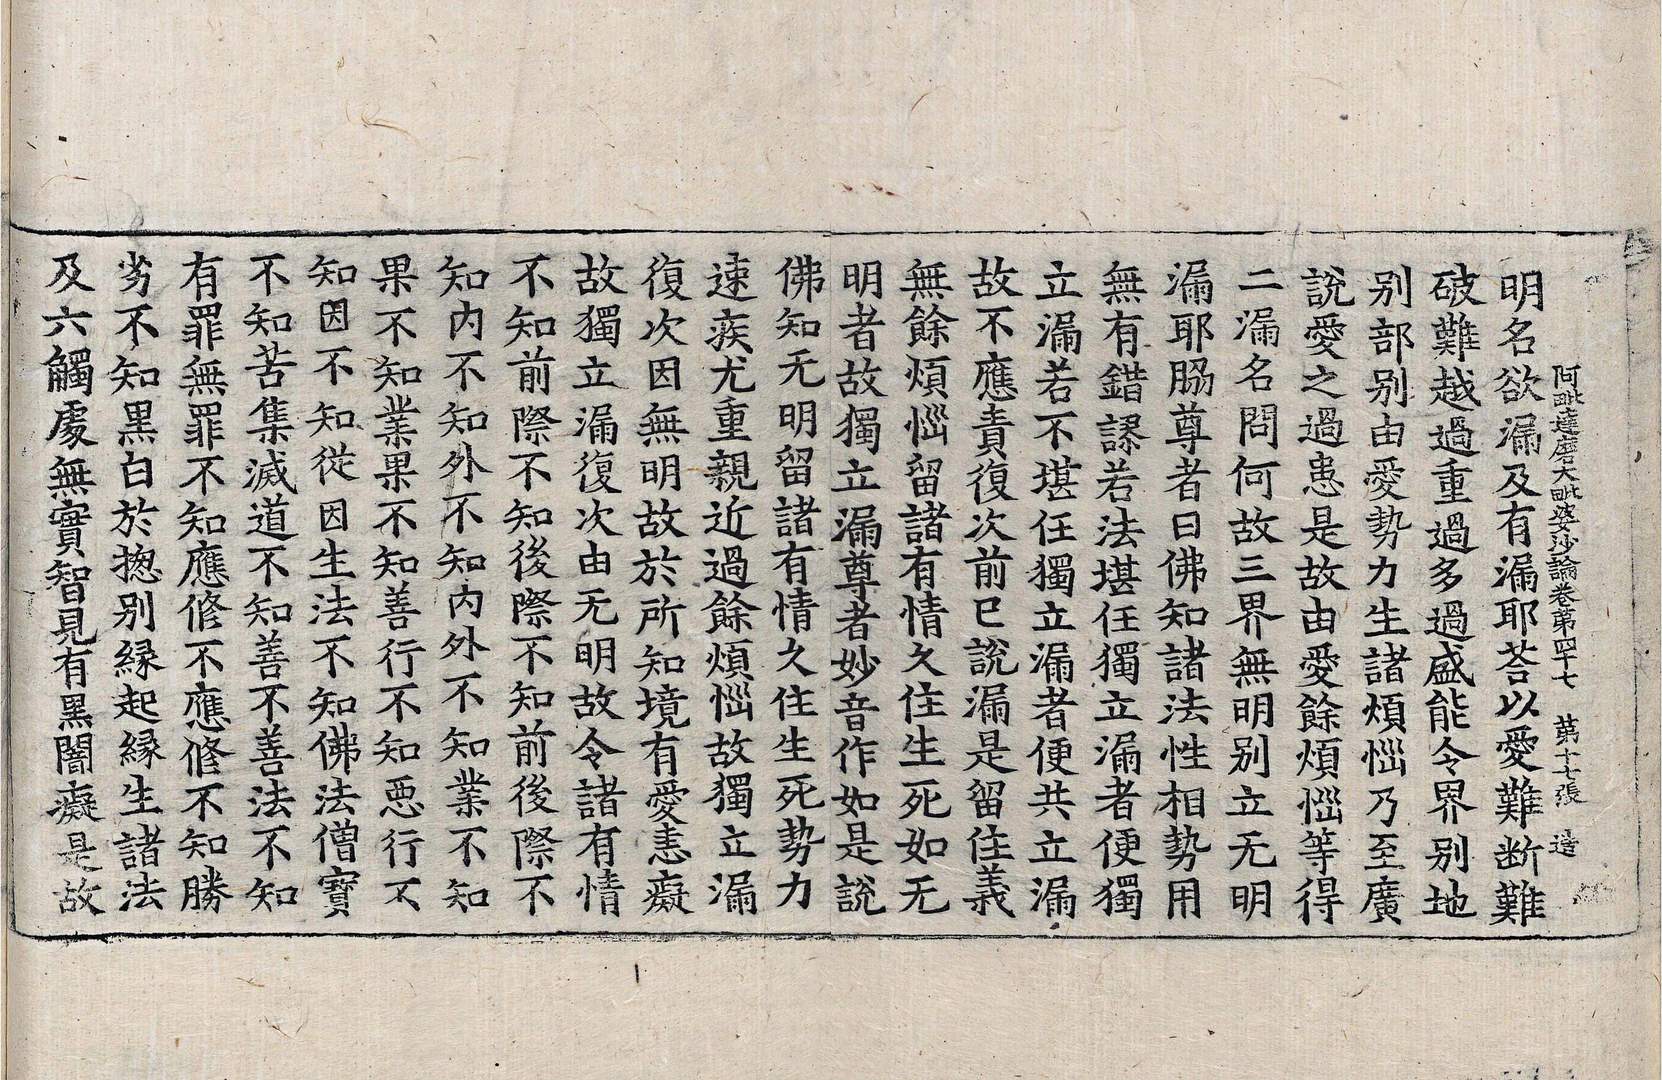 阿毗達磨大毗婆沙論卷第四十七 第十七張 造
明名欲漏及有漏耶荅以愛難断難
破難越過重過多過盛能令界别地
别部别由愛勢力生諸煩惱乃至廣
說愛之過患是故由愛餘煩惱等得
二漏名問何故三界無明别立无明
漏耶脇尊者曰佛知諸法性相勢用
無有錯謬若法堪任獨立漏者便獨
立漏若不堪任獨立漏者便共立漏
故不應責復次前已說漏是留住義
無餘煩惱留諸有情久住生死如无
明者故獨立漏尊者妙音作如是說
佛知无明留諸有情久住生死勢力
速疾尤重親近過餘煩惱故獨立漏
復次因無明故於所知境有愛恚癡
故獨立漏復次由无明故令諸有情
不知前際不知後際不知前後際不
知內不知外不知內外不知業不知
果不知業果不知善行不知惡行不
知因不知從因生法不知佛法僧寶
不知苦集滅道不知善不善法不知
有罪無罪不知應修不應修不知勝
劣不知黑白於揔别緣起緣生諸法
及六觸處無實智見有黑闇癡是故